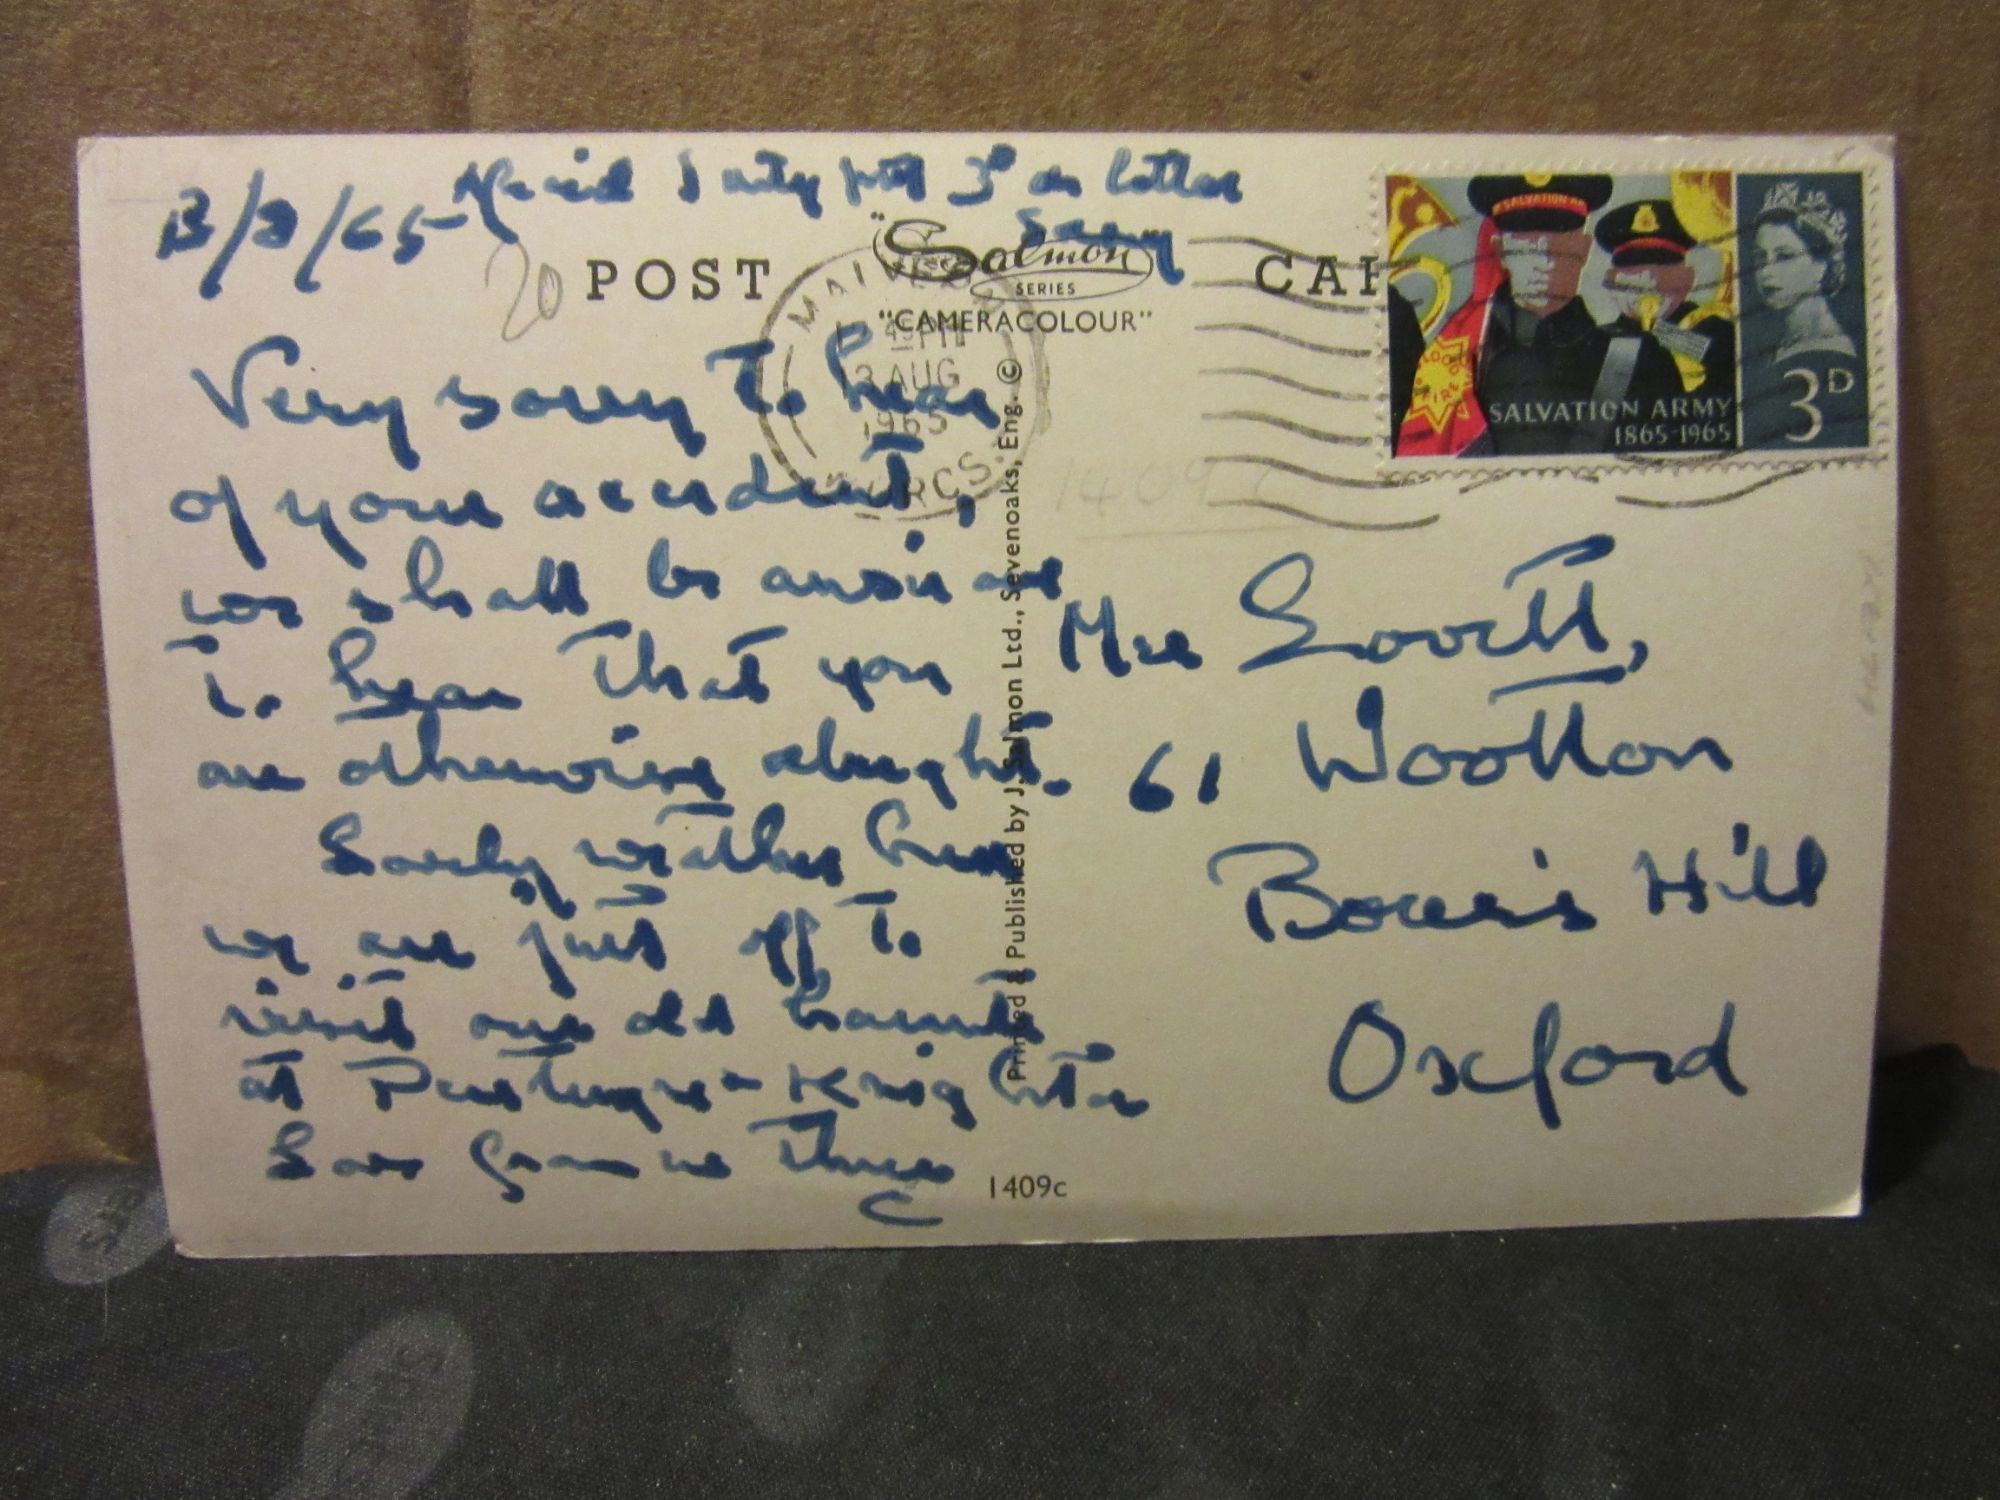 13/8/65
Afraid I only put 3ᴰ on letter
Sorry
20
POST CAR
"Salmon
SERIES
"CAMERACOLOUR"
MALVERN
45 PM
13 AUG
1965
WORCS.
SALVATION ARMY
1865-1965
3D
1409
Very sorry to hear
of your accident,
we shall be anxious
to hear that you
are otherwise alright.
Lovely weather here
we are just off to
visit our old haunts
at
Love from us three
C
Printed & Published by J. Salmon Ltd., Sevenoaks, Eng. ©
1409c
Mrs Lovett,
61 Wootton
Boar's Hill
Oxford